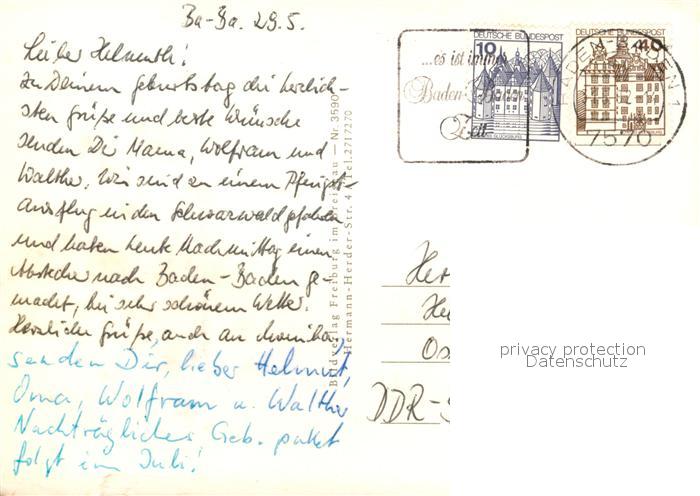 Ba-Ba. 29.5.
Lieber Helmuth!
Zu Deinem Geburtstag die herzlich-
sten Grüße und beste Wünsche
senden Dir Mama, Wolfram und
Walther. Wir sind zu einem Pfingst-
Ausflug in den Schwarzwald gefahren
und haben heute Nachmittag einen
Abstecher nach Baden-Baden ge-
macht, bei sehr schönem Wetter.
Herzliche Grüße, auch an Monika,
senden Dir, lieber Helmut,
Oma, Wolfram u. Walther
Nachträgliches Geb. paket
folgt im Juli!
Bildverlag Freiburg im Breisgau — Nr. 3590
Hermann-Herder-Str. 4 Tel. 2717270
...es ist immer
Baden-Ba
Zeit
10
DEUTSCHE BUNDESPOST
40
DEUTSCHE BUNDESPOST
BADEN-BADEN 1
7570
Her
He
Os
DDR-
privacy protection
Datenschutz